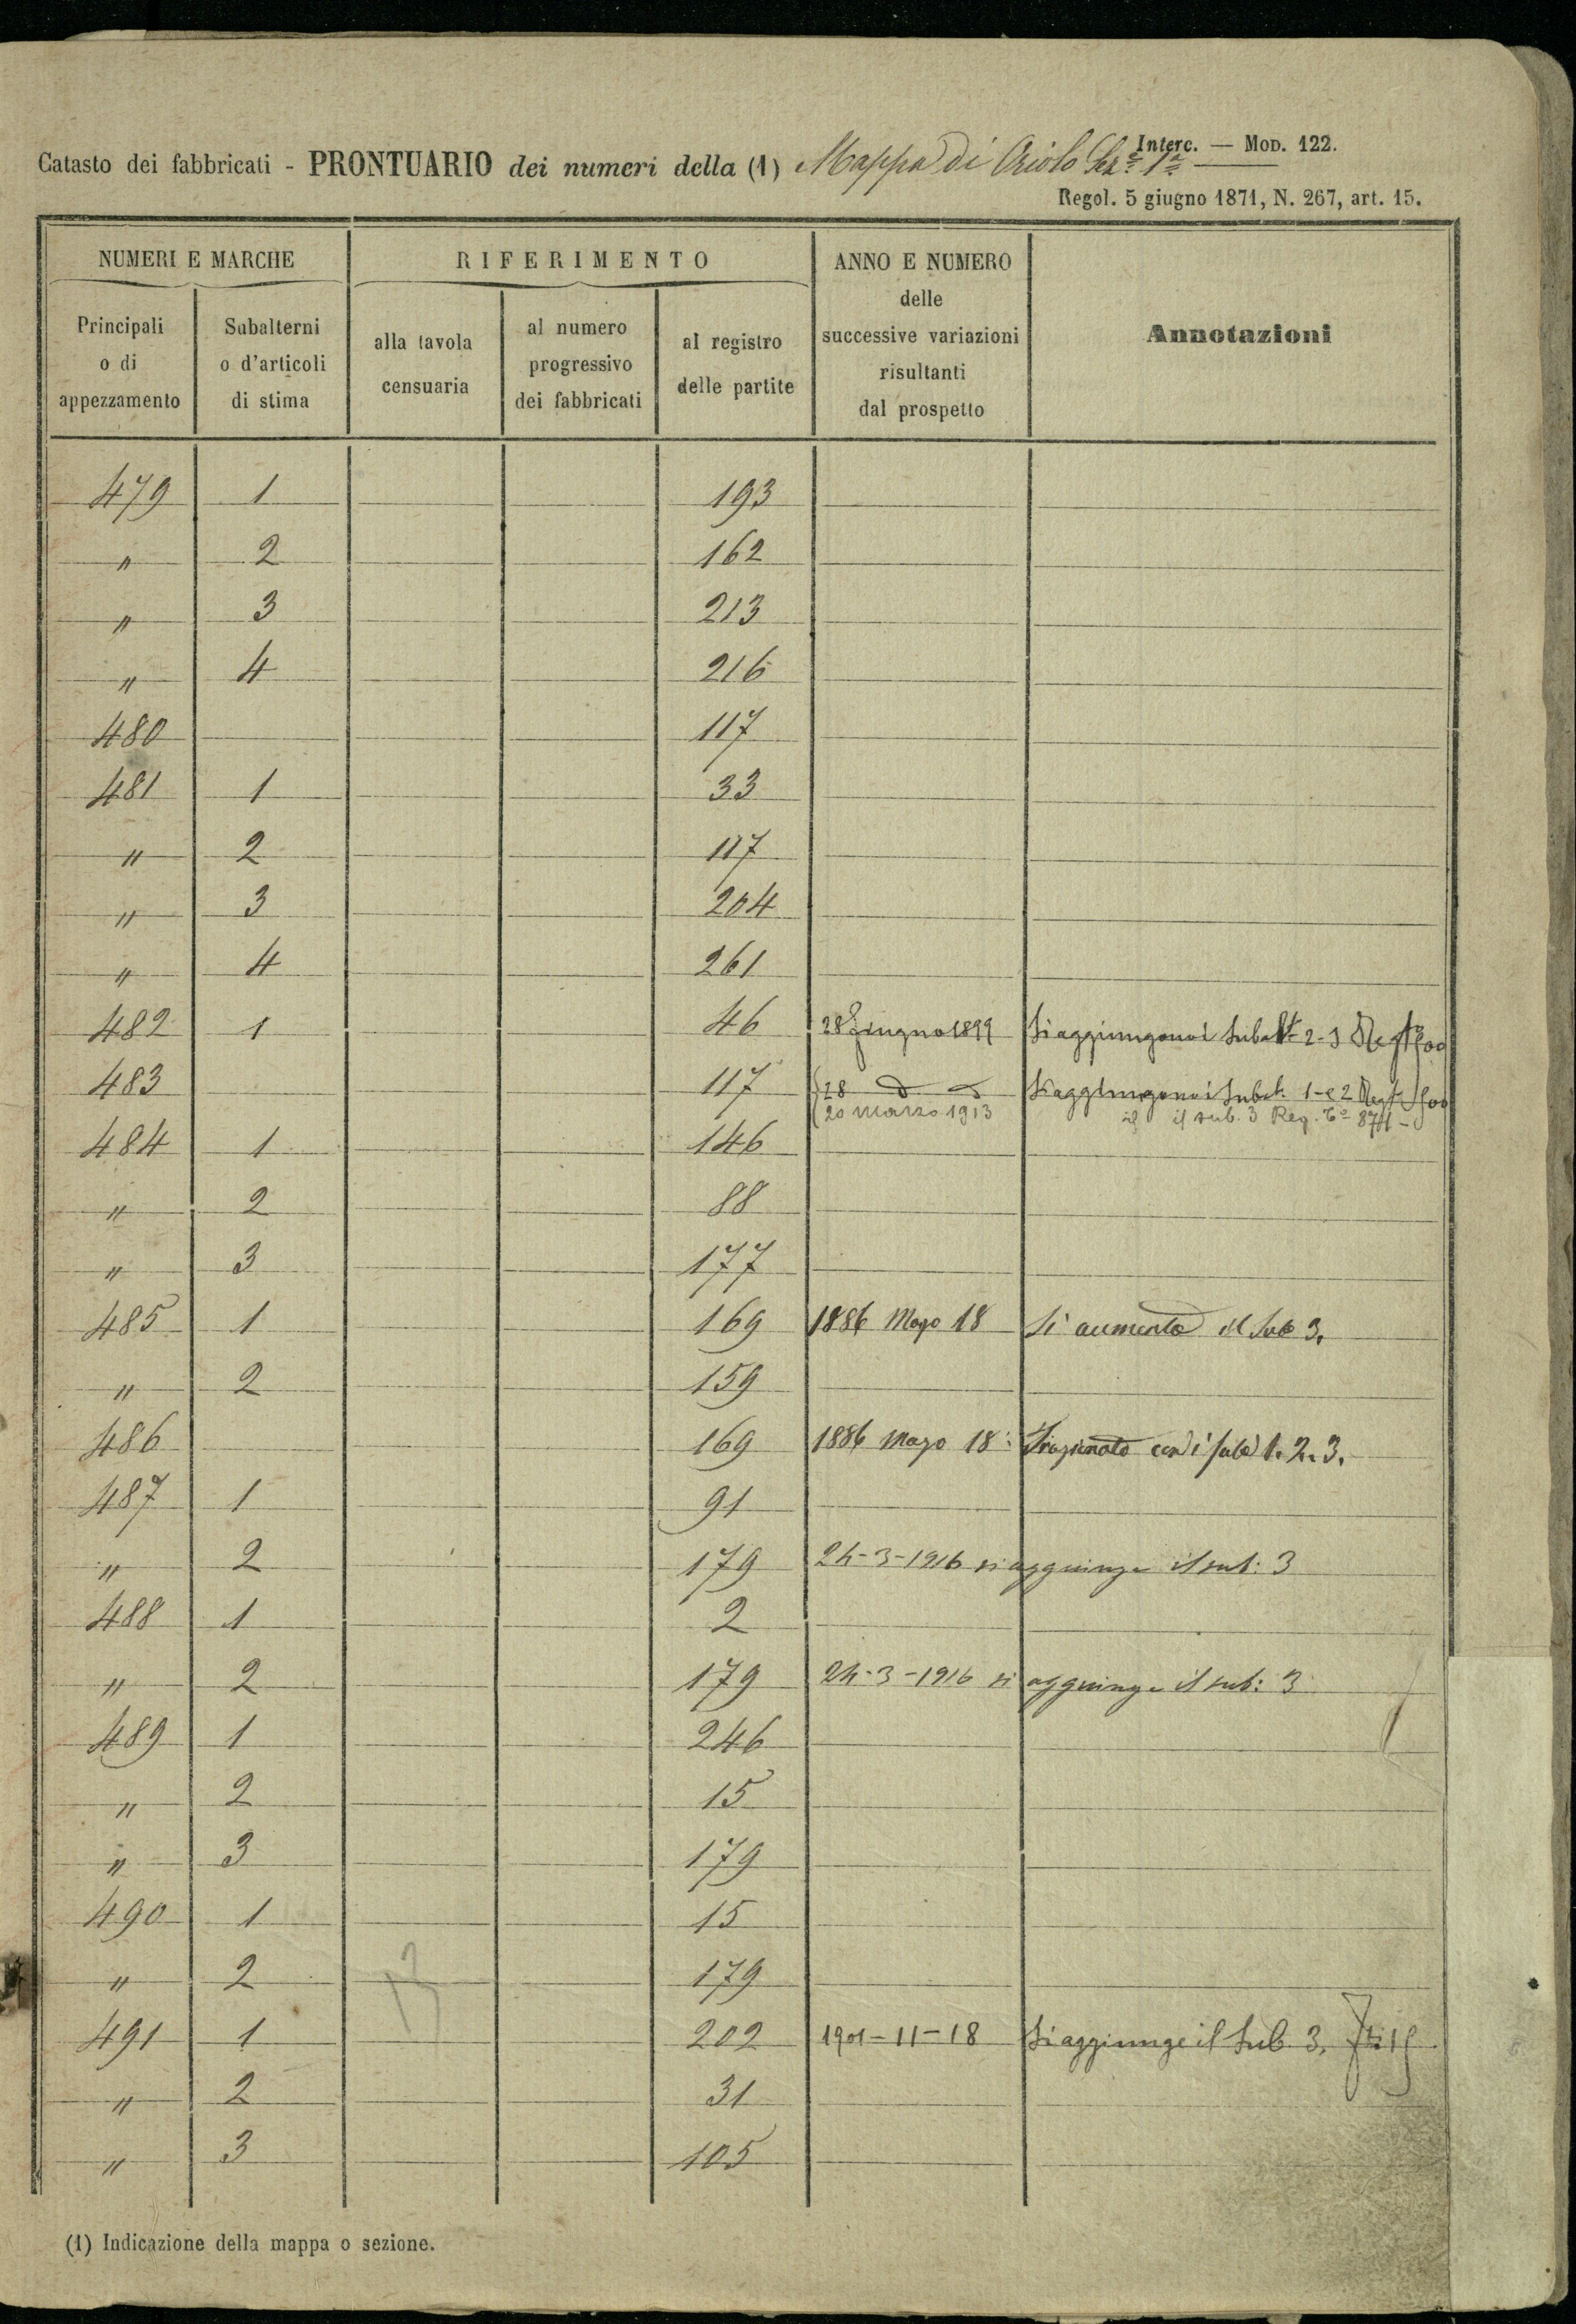 Interc. — Mod. 122.
Catasto dei fabbricati - PRONTUARIO dei numeri della (1) Mappa di Oriolo Sez.e 1a
Regol. 5 giugno 1871, N. 267, art. 15.
NUMERI E MARCHE RIFERIMENTO ANNO E NUMERO delle successive variazioni risultanti dal prospetto Annotazioni
Principali o di appezzamento Subalterni o d'articoli di stima alla tavola censuaria al numero progressivo dei fabbricati al registro delle partite
479 1 193
" 2 162
" 3 213
" 4 216
480 117
481 1 33
" 2 117
" 3 204
" 4 261
482 1 46 28 Giugno 1899 Si aggiungono i Subalt. 2-3
483 117 28 Si aggiungono i Subalt. 1-e 2
20 marzo 1913 il sub. 3 Reg. 
484 1 146
" 2 88
" 3 177
485 1 169 1886 Mago 18 Si aumenta il Sub 3.
" 2 159
486 169 1886 Mago 18 Frazionato con i sub 1. 2. 3.
487 1 91
" 2 179 24-3-1916 si aggiunge il sub: 3
488 1 2
" 2 179 24-3-1916 si aggiunge il sub: 3
489 1 246
" 2 15
" 3 179
490 1 15
" 2 179
491 1 202 1901-11-18 Si aggiunge il Sub. 3.
" 2 31
" 3 105
(1) Indicazione della mappa o sezione.